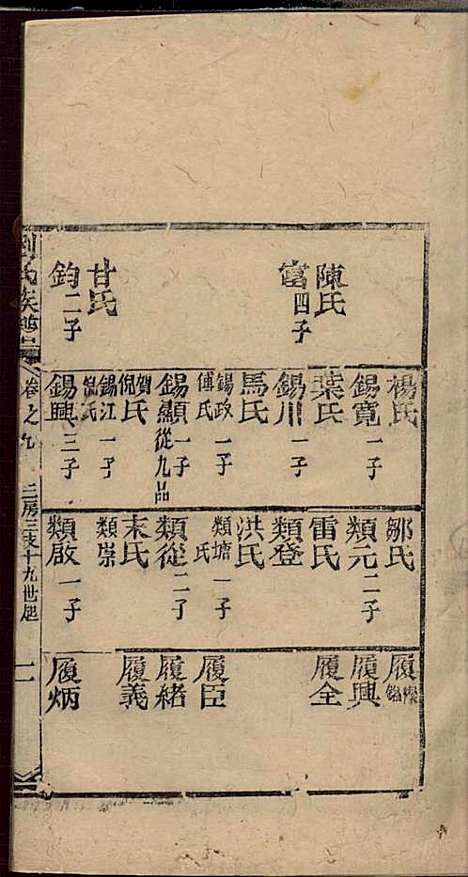 陳氏
富四子
甘氏
鈞二子
楊氏
錫寬一子
葉氏
錫川一子
馬氏
錫政一子
傅氏
錫顯從九品一子
賀氏
倪氏
錫江一子
倪氏
錫興三子
鄒氏
類元二子
雷氏
類登
洪氏
類塘一子
氏
類從二子
宋氏
類崇
類啟一子
履
履興
履全
履臣
履緒
履義
履炳
劉氏族譜
卷之九
三房三支十九世起
二